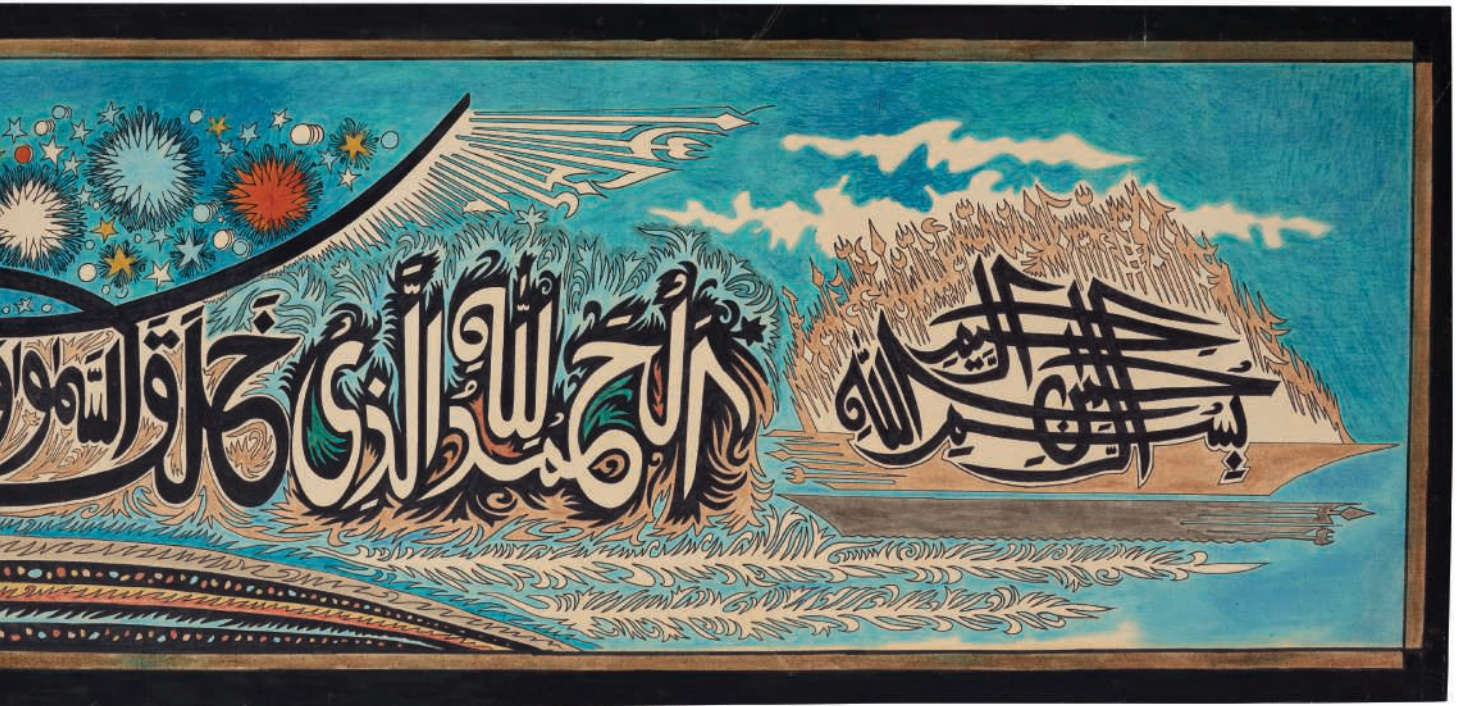 بِسْمِ اللّٰهِ الرَّحْمٰنِ الرَّحِيمِ
اَلْحَمْدُ لِلّٰهِ الَّذِي خَلَقَ السَّمٰوَ